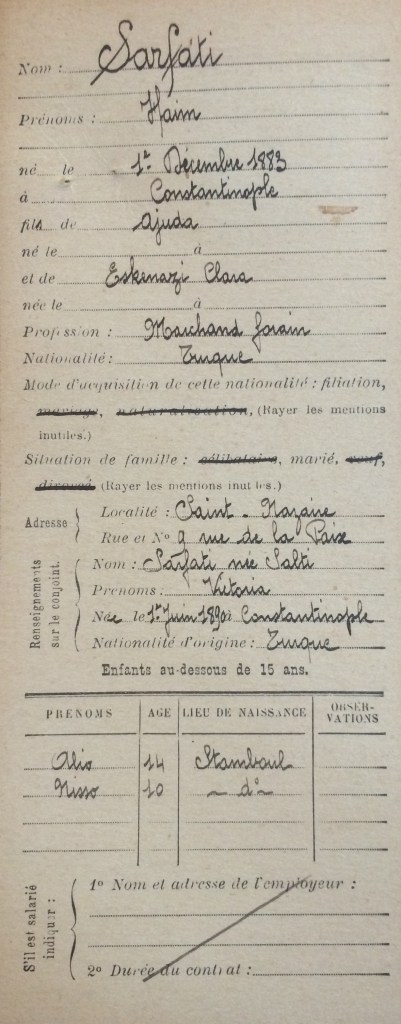 Nom : Sarfati
Prénoms : Haim
né le 1er Décembre 1883
à Constantinople
fils de Ajuda
né le à
et de Eskenazi Clara
née le à
Profession : Marchand forain
Nationalité: Turque
Mode d'acquisition de cette nationalité : filiation,
mariage, naturalisation, (Rayer les mentions
inutiles.)
Situation de famille : célibataire, marié, veuf,
divorcé (Rayer les mentions inutiles.)
Adresse
Localité : Saint-Nazaire
Rue et N° 9 rue de la Paix
Renseignements
sur le conjoint.
Nom : Sarfati née Salti
Prenoms : Victoria
Née le 1er Juin 1890 à Constantinople
Nationalité d'origine : Turque
Enfants au-dessous de 15 ans.
PRÉNOMS AGE LIEU DE NAISSANCE OBSER-
VATIONS
Alio 14 Stamboul
Nisso 10 ~ d° ~
S'il est salarié
indiquer :
1° Nom et adresse de l'employeur :
2° Durée du contrat :